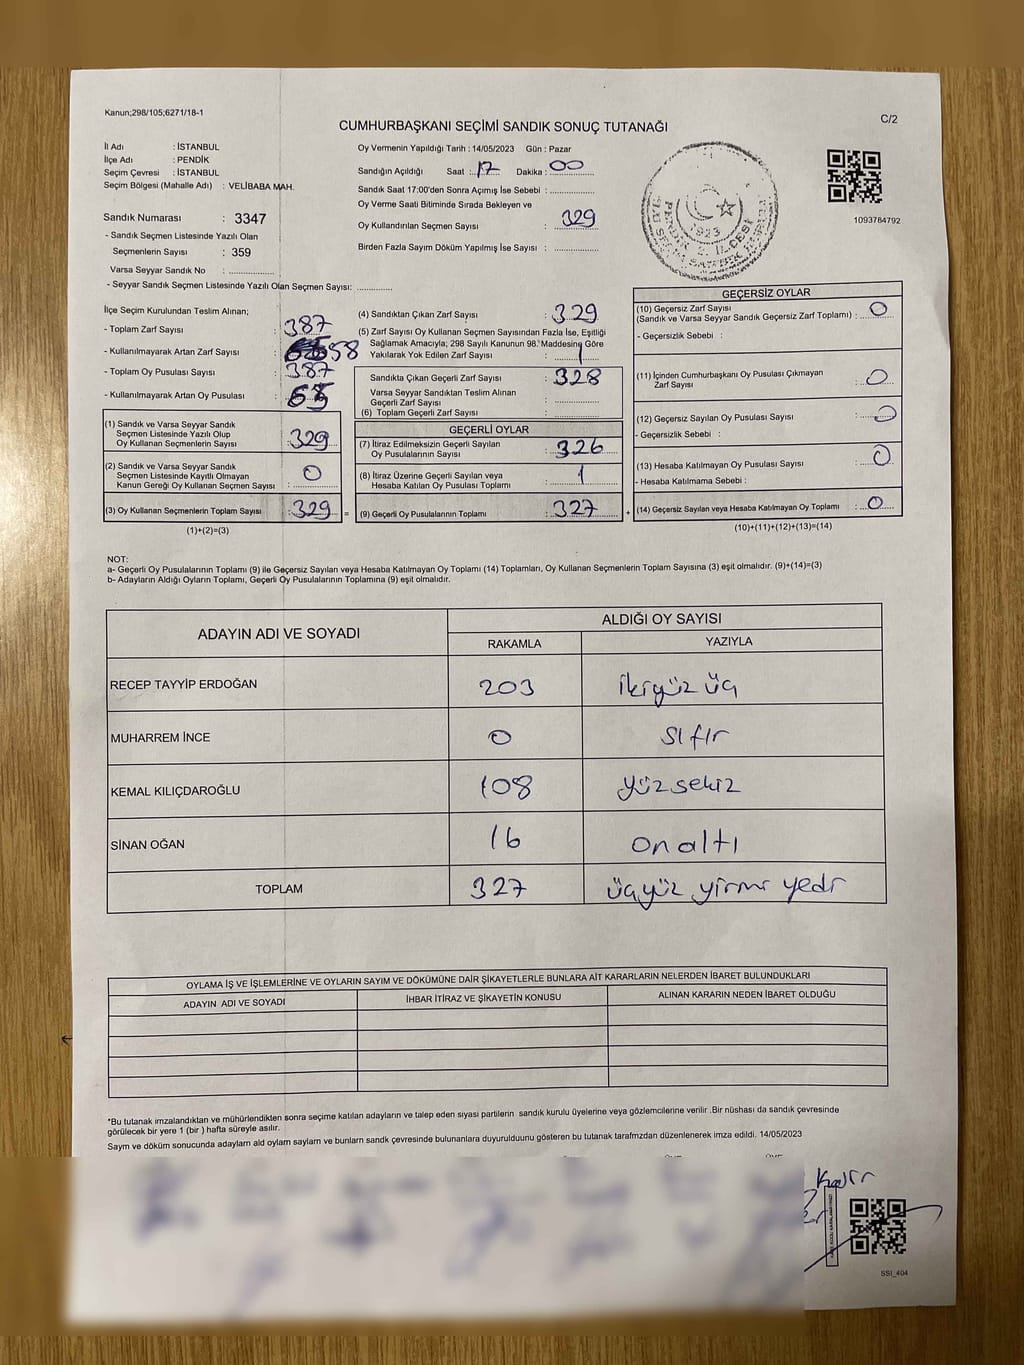 Kanun;298/105;6271/18-1
C/2
CUMHURBAŞKANI SEÇİMİ SANDIK SONUÇ TUTANAĞI
İl Adı : İSTANBUL
İlçe Adı : PENDİK
Seçim Çevresi : İSTANBUL
Seçim Bölgesi (Mahalle Adı) : VELİBABA MAH.
Sandık Numarası : 3347
- Sandık Seçmen Listesinde Yazılı Olan
Seçmenlerin Sayısı : 359
Varsa Seyyar Sandık No : ..............
- Seyyar Sandık Seçmen Listesinde Yazılı Olan Seçmen Sayısı: ............
Oy Vermenin Yapıldığı Tarih : 14/05/2023 Gün : Pazar
Sandığın Açıldığı Saat : 17 Dakika : 00
Sandık Saat 17:00'den Sonra Açımış İse Sebebi : ..............
Oy Verme Saati Bitiminde Sırada Bekleyen ve
Oy Kullandırılan Seçmen Sayısı : 329
Birden Fazla Sayım Döküm Yapılmış İse Sayısı : ..............
1923
1093784792
İlçe Seçim Kurulundan Teslim Alınan;
- Toplam Zarf Sayısı : 387
- Kullanılmayarak Artan Zarf Sayısı : 58
- Toplam Oy Pusulası Sayısı : 387
- Kullanılmayarak Artan Oy Pusulası Sayısı :
(1) Sandık ve Varsa Seyyar Sandık
Seçmen Listesinde Yazılı Olup
Oy Kullanan Seçmenlerin Sayısı : 329
(2) Sandık ve Varsa Seyyar Sandık
Seçmen Listesinde Kayıtlı Olmayan
Kanun Gereği Oy Kullanan Seçmen Sayısı : 0
(3) Oy Kullanan Seçmenlerin Toplam Sayısı : 329 =
(1)+(2)=(3)
(4) Sandıktan Çıkan Zarf Sayısı : 329
(5) Zarf Sayısı Oy Kullanan Seçmen Sayısından Fazla İse, Eşitliği
Sağlamak Amacıyla; 298 Sayılı Kanunun 98. Maddesine Göre
Yakılarak Yok Edilen Zarf Sayısı : 1
Sandıkta Çıkan Geçerli Zarf Sayısı : 328
Varsa Seyyar Sandıktan Teslim Alınan
Geçerli Zarf Sayısı : ..............
(6) Toplam Geçerli Zarf Sayısı : ..............
GEÇERLİ OYLAR
(7) İtiraz Edilmeksizin Geçerli Sayılan
Oy Pusulalarının Sayısı : 326
(8) İtiraz Üzerine Geçerli Sayılan veya
Hesaba Katılan Oy Pusulası Toplamı : 1
(9) Geçerli Oy Pusulalarının Toplamı : 327 +
GEÇERSİZ OYLAR
(10) Geçersiz Zarf Sayısı
(Sandık ve Varsa Seyyar Sandık Geçersiz Zarf Toplamı) : 0
- Geçersizlik Sebebi :
(11) İçinden Cumhurbaşkanı Oy Pusulası Çıkmayan
Zarf Sayısı : 0
(12) Geçersiz Sayılan Oy Pusulası Sayısı : 0
- Geçersizlik Sebebi :
(13) Hesaba Katılmayan Oy Pusulası Sayısı : 0
- Hesaba Katılmama Sebebi :
(14) Geçersiz Sayılan veya Hesaba Katılmayan Oy Toplamı : 0
(10)+(11)+(12)+(13)=(14)
NOT:
a- Geçerli Oy Pusulalarının Toplamı (9) ile Geçersiz Sayılan veya Hesaba Katılmayan Oy Toplamı (14) Toplamları, Oy Kullanan Seçmenlerin Toplam Sayısına (3) eşit olmalıdır. (9)+(14)=(3)
b- Adayların Aldığı Oyların Toplamı, Geçerli Oy Pusulalarının Toplamına (9) eşit olmalıdır.
ADAYIN ADI VE SOYADI ALDIĞI OY SAYISI
RAKAMLA YAZIYLA
RECEP TAYYİP ERDOĞAN 203 ikiyüz üç
MUHARREM İNCE 0 sıfır
KEMAL KILIÇDAROĞLU 108 yüzsekiz
SİNAN OĞAN 16 onaltı
TOPLAM 327 üçyüz yirmi yedi
OYLAMA İŞ VE İŞLEMLERİNE VE OYLARIN SAYIM VE DÖKÜMÜNE DAİR ŞİKAYETLERLE BUNLARA AİT KARARLARIN NELERDEN İBARET BULUNDUKLARI
ADAYIN ADI VE SOYADI İHBAR İTİRAZ VE ŞİKAYETİN KONUSU ALINAN KARARIN NEDEN İBARET OLDUĞU
*Bu tutanak imzalandıktan ve mühürlendikten sonra seçime katılan adayların ve talep eden siyasi partilerin sandık kurulu üyelerine veya gözlemcilerine verilir .Bir nüshası da sandık çevresinde
görülecek bir yere 1 (bir ) hafta süreyle asılır.
Saym ve döküm sonucunda adaylarn ald oylarn saylarn ve bunlarn sandk çevresinde bulunanlara duyurulduunu gösteren bu tutanak tarafmzdan düzenlenerek imza edildi. 14/05/2023
Kadir
SSI_404